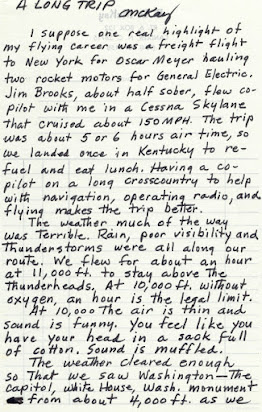 A LONG TRIP
McKay
I suppose one real highlight of
my flying career was a freight flight
to New York for Oscar Meyer hauling
two rocket motors for General Electric.
Jim Brooks, about half sober, flew co-
pilot with me in a Cessna Skylane
that cruised about 150 MPH. The trip
was about 5 or 6 hours air time, so
we landed once in Kentucky to re-
fuel and eat lunch. Having a co-
pilot on a long crosscountry to help
with navigation, operating radio, and
flying makes the trip better.
The weather much of the way
was terrible. Rain, poor visibility and
Thunderstorms were all along our
route. We flew for about an hour
at 11,000 ft. to stay above the
Thunderheads. At 10,000 ft. without
oxygen, an hour is the legal limit.
At 10,000 the air is thin and
sound is funny. You feel like you
have your head in a sack full
of cotton. Sound is muffled.
The weather cleared enough
so that we saw Washington—The
capitol, white House, Wash. monument
from about 4,000 ft. as we